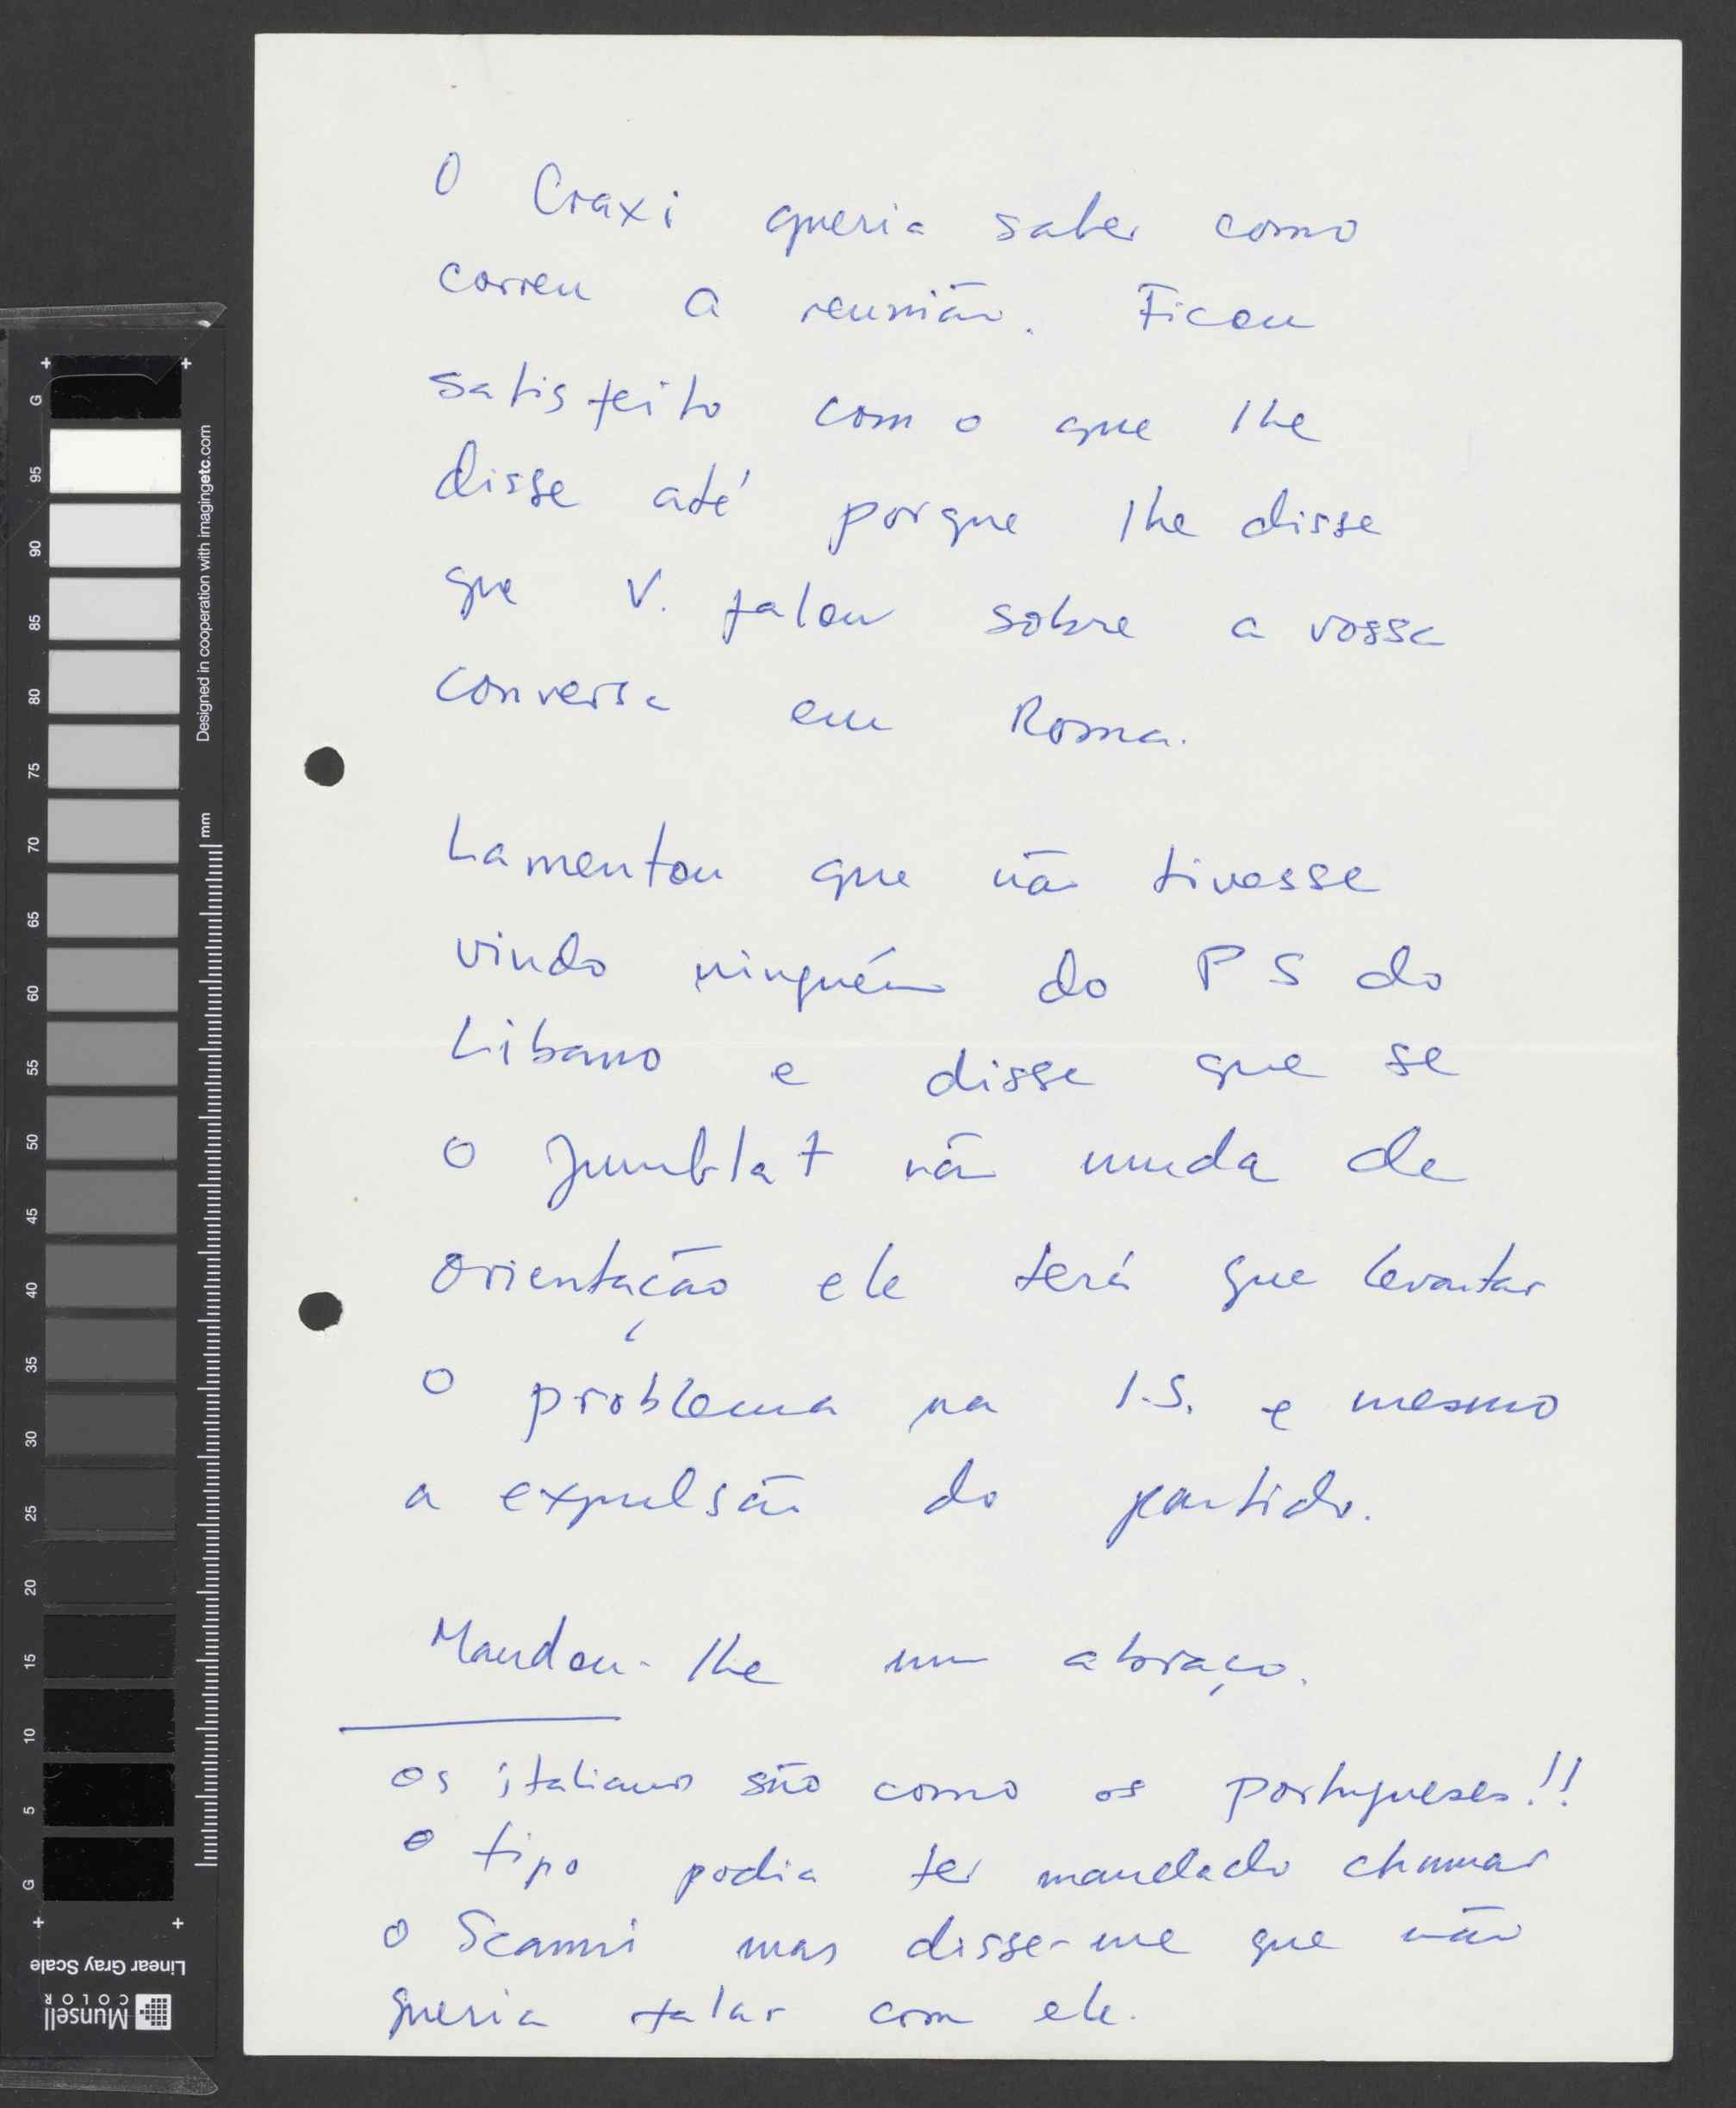 O Craxi queria saber como
correu a reunião. Ficou
satisfeito com o que lhe
disse até porque lhe disse
que V. falou sobre a vossa
conversa em Roma.
Lamentou que não tivesse
vindo ninguém do PS do
Libano e disse que se
o Jumblat não muda de
orientação ele terá que levantar
o problema na I.S. e mesmo
a expulsão do partido.
Mandou-lhe um abraço.
Os italianos são como os portugueses!!
O tipo podia ter mandado chamar
o Scanni mas disse-me que não
queria falar com ele.
G 95 90 85 80 75 70 65 60 55 50 45 40 35 30 25 20 15 10 5 G
Designed in cooperation with imagingetc.com
mm
Linear Gray Scale
Munsell
COLOR